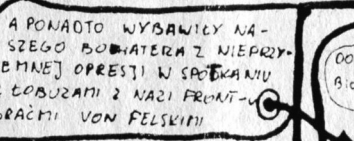 A PONADTO WYBAWIŁY NA-
SZEGO BOHATERA Z NIEPRZY-
EMNEJ OPRESJI W SPOTKANIU
ŁOBUZAMI Z NAZI FRONT-U
BRAĆMI VON FELSKIMI
DO